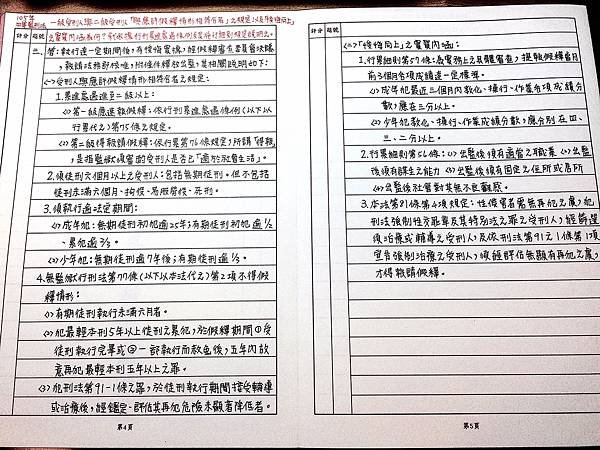 105年
四等監獄官
一級受刑人與二級受刑人「與應許假釋情形相符合者」之規定以及「悛悔向上」
之實質內涵為何?試依據行刑累進處遇條例及其施行細則規定說明之。
計分 題號
三、答:執行逾一定期間後,有悛悔實據,經假釋審查委員會決議
,報請法務部核准,附條件釋放出監,其相關說明如下:
(一)受刑人與應許假釋情形相符合者之規定:
1.累進處遇進至二級以上:
(1)第一級應速報假釋:依行刑累進處遇條例(以下以
行累代之)第75條之規定。
(2)第二級得報請假釋:依行累第76條規定;所謂「得報」
,是指監獄須審酌受刑人是否已「適於社會生活」。
2.須徒刑六個月以上之受刑人:包括無期徒刑。但不包括
徒刑未滿六個月、拘役、易服勞役、死刑。
3.須執行逾法定期間:
(1)成年犯:無期徒刑初犯逾25年;有期徒刑初犯逾1/2
、累犯逾2/3。
(2)少年犯:無期徒刑逾7年後;有期徒刑逾1/3。
4.無監獄行刑法第77條(以下以本法代之)第2項不得假
釋情形:
(1)有期徒刑執行未滿六月者。
(2)犯最輕本刑5年以上徒刑之累犯,於假釋期間①受
徒刑執行完畢或②一部執行而赦免後,五年內故
意再犯最輕本刑五年以上之罪。
(3)犯刑法第91-1條之罪,於徒刑執行期間接受輔導
或治療後,經鑑定、評估其再犯危險未顯著降低者。
第4頁
計分 題號
(二)「悛悔向上」之實質內涵:
1.行累細則第57條:為實務上之具體審查,提報假釋當月
前3個月各項成績達一定標準。
(1)成年犯最近三個月內教化、操行、作業各項成績分
數,應在三分以上。
(2)少年犯教化、操行、作業成績分數,應分別在四、
三、二分以上。
2.行累細則第56條:(1)出監後須有適當之職業 (2)出監
後須有謀生之能力 (3)出監後須有固定之住所或居所
(4)出監後社會對其無不良觀感。
3.本法第81條第4項規定:性侵害者需無再犯之虞,犯
刑法強制性交罪章及其特別法之罪之受刑人,經篩選
須治療或輔導之受刑人,及依刑法第91之1條第1項
宣告強制治療之受刑人,須經評估無顯有再犯之虞,
才得報請假釋。
第5頁